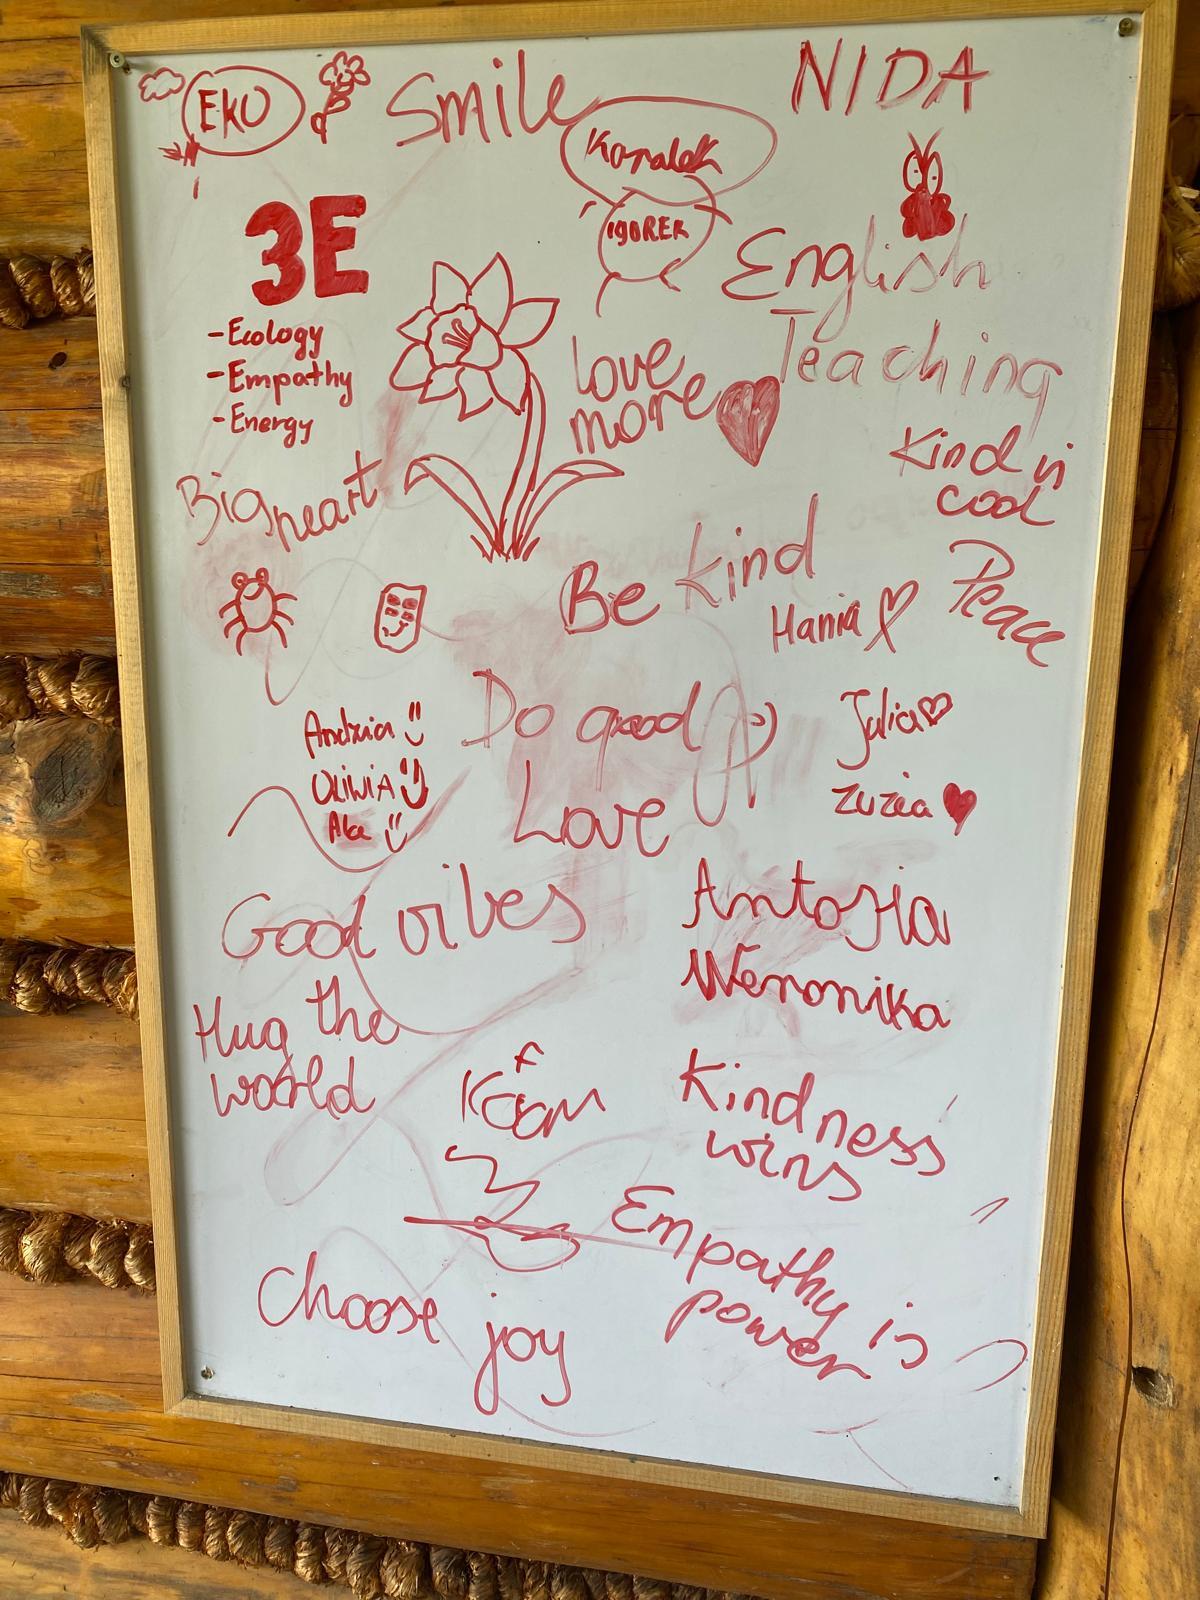 EKO
Smile
NIDA
Koralek
IgoREK
3E
English
Teaching
-Ecology
-Empathy
-Energy
love
more
Kind is
cool
Big heart
Be kind
Hania
Peace
Do good
Julia
OLIWIA
Ala
zuzia
Love
Good vibes
Antosia
Weronika
Hug the
world
Kindness
wins
Empathy is
power
Choose joy